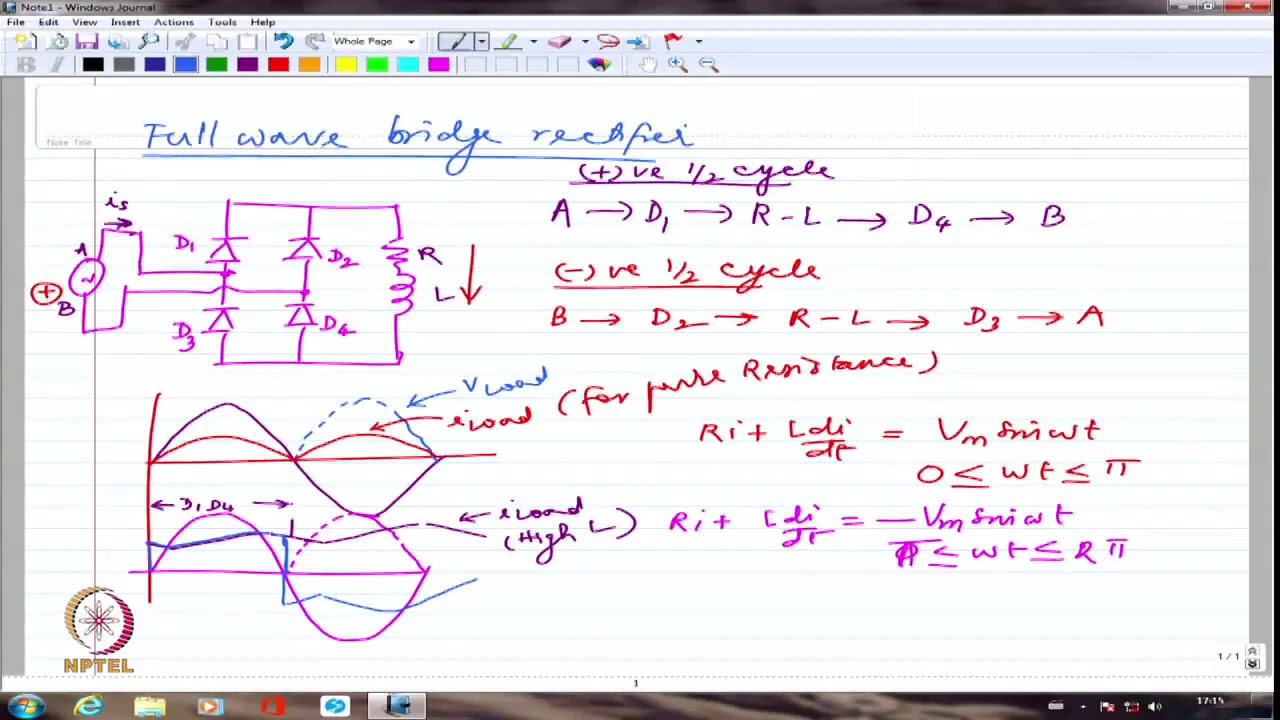 Note1 - Windows Journal
File Edit View Insert Actions Tools Help
Whole Page
B I
Full wave bridge rectfier
Note Title
(+)ve 1/2 cycle
A → D1 → R-L → D4 → B
(-)ve 1/2 cycle
B → D2 → R-L → D3 → A
is
A
B
+
~
D1
D2
D3
D4
R
L
VLoad
iLoad (for pure Resistance)
Ri + Ldi/dt = Vm sin ωt
0 ≤ ωt ≤ π
D1 D4
iLoad
(High L)
Ri + Ldi/dt = -Vm sin ωt
π ≤ ωt ≤ 2π
NPTEL
1/1
1
17:15